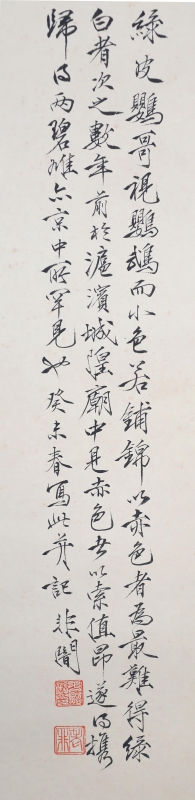 綠皮鸚哥視鸚鵡而小色若鋪錦以赤色者為最難得綠
白者次之數年前於滬濱城隍廟中見赤色者以索值昂遂得攜
歸此兩碧雌亦京中所罕見也癸未春寫此并記非闇